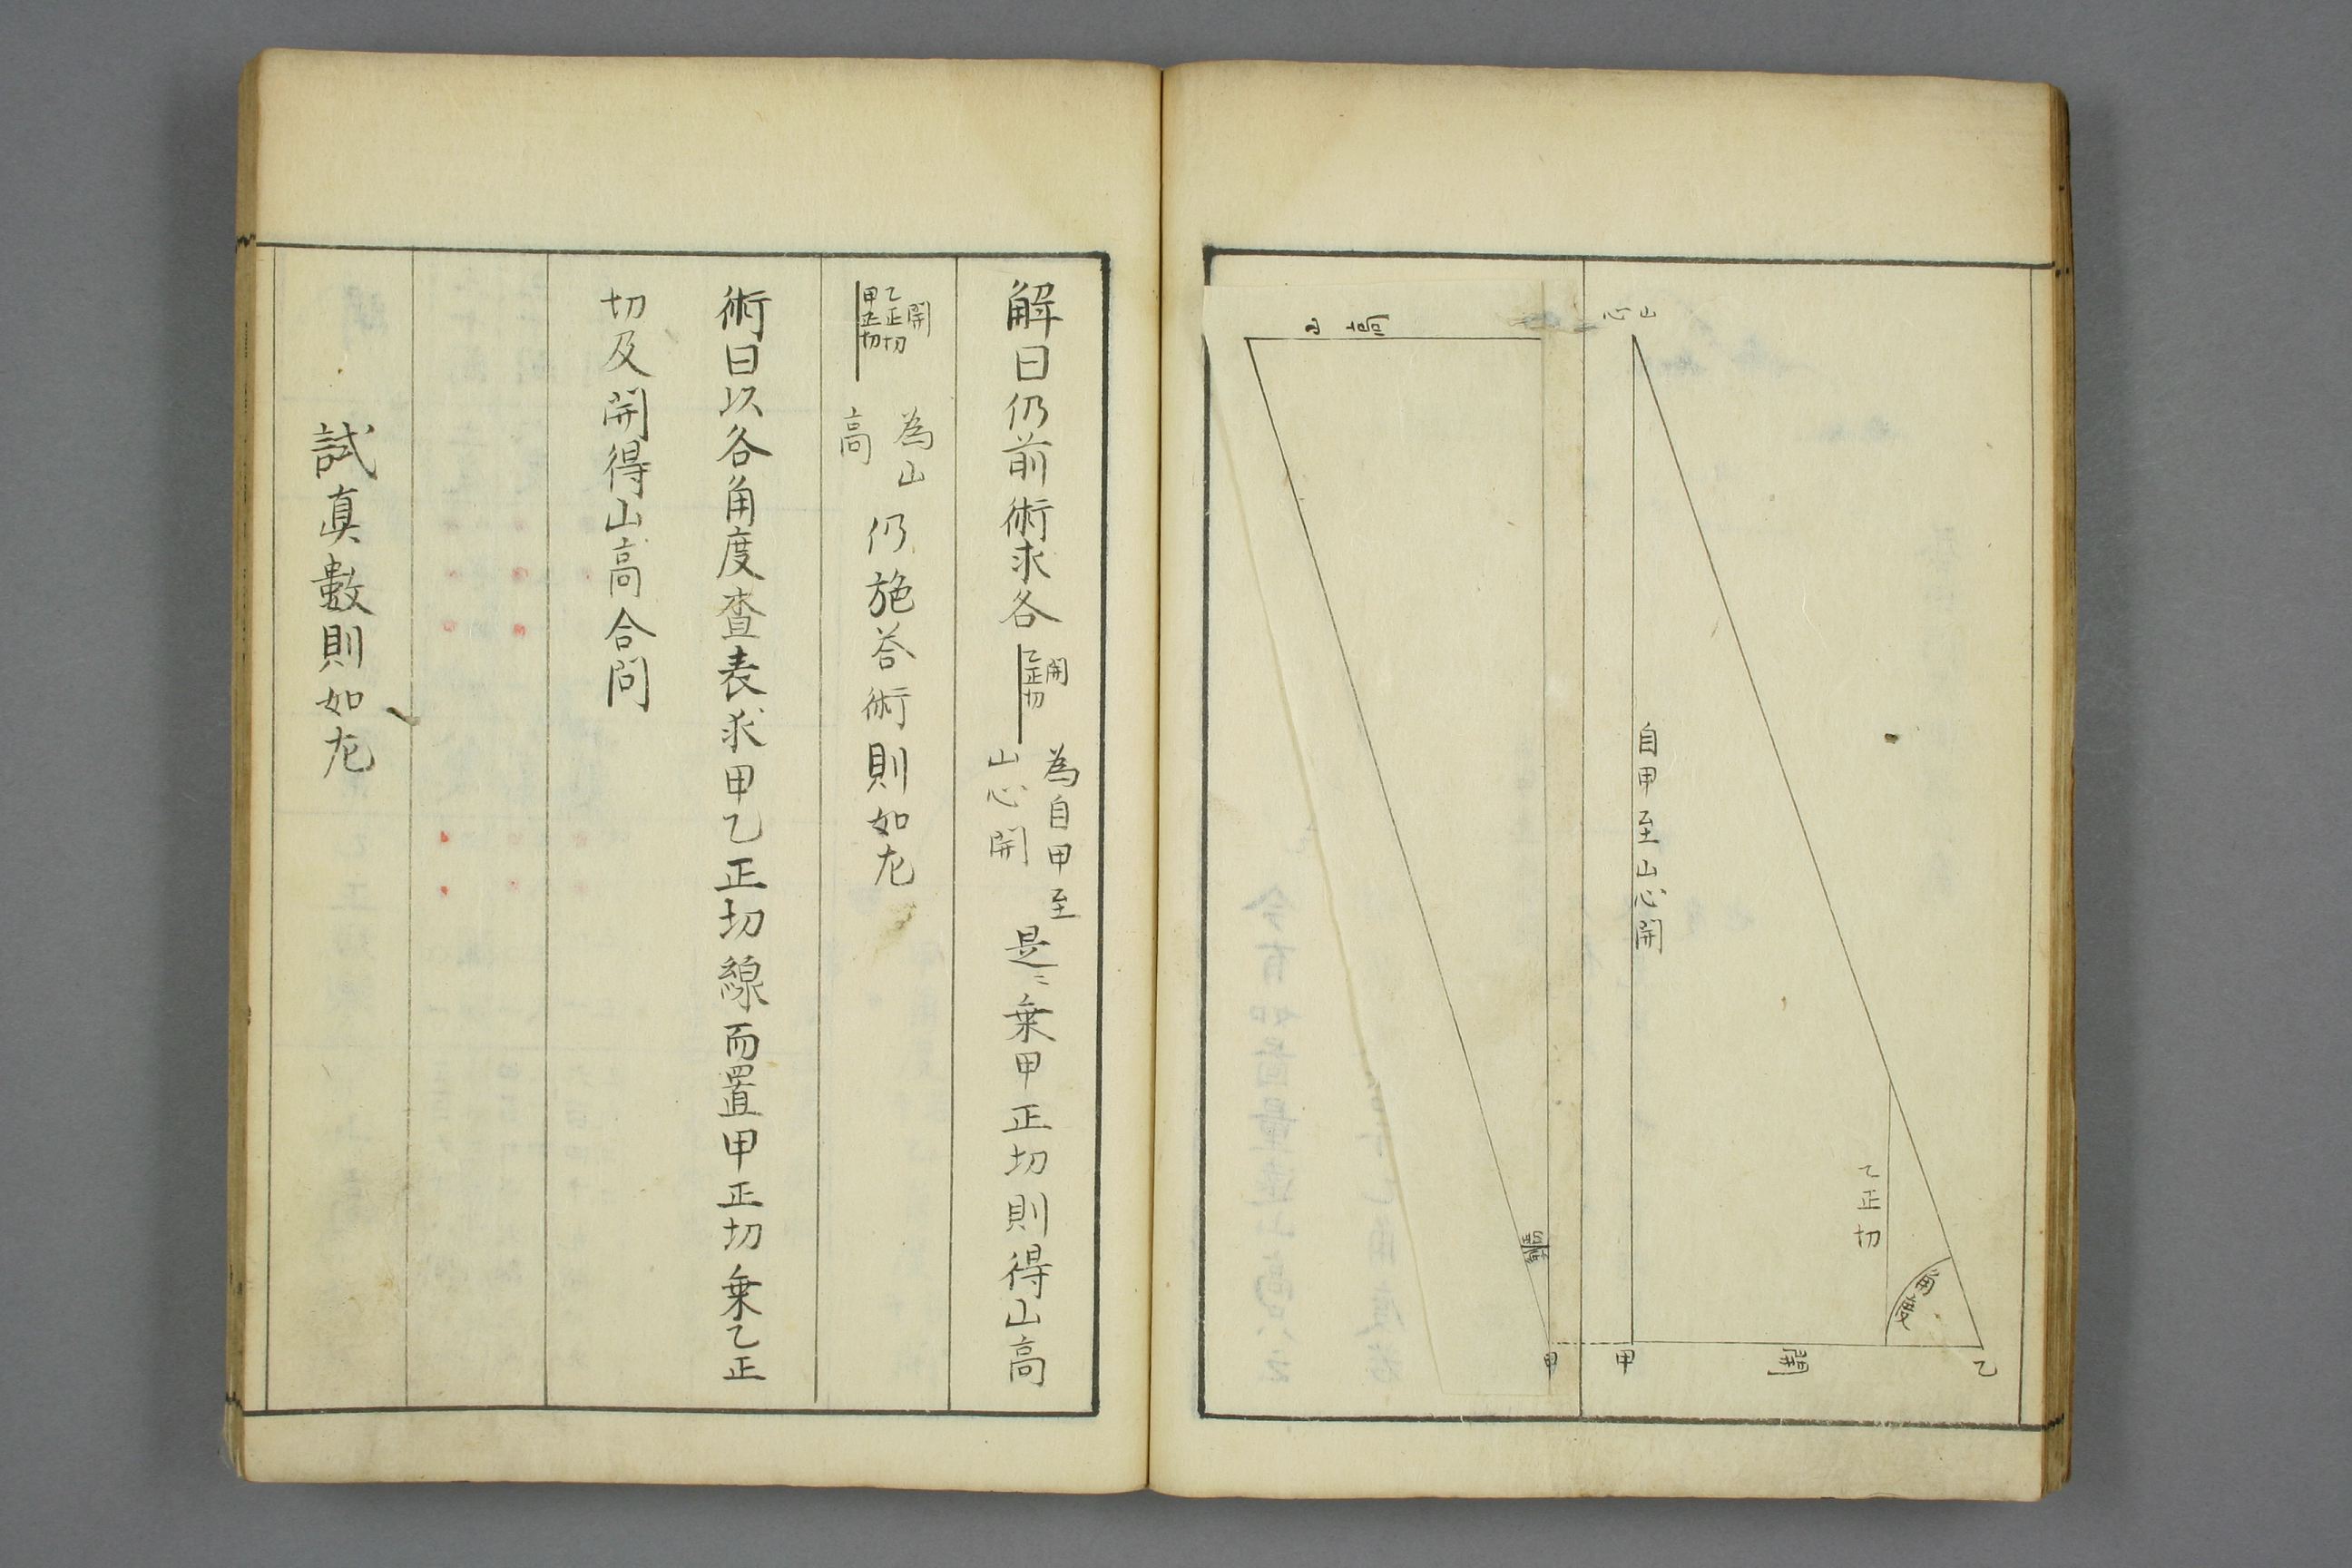 山心
自甲至山心開
乙正切
角度
乙
開
甲
山高
甲
解曰仍前術求各
開
乙正切
為自甲至
山心開
是〻乗甲正切則得山高
開
乙正切
甲正切
為山
高
仍施答術則如左
術曰以各角度査表求甲乙正切線而置甲正切乗乙正
切及開得山高合問
試真數則如左